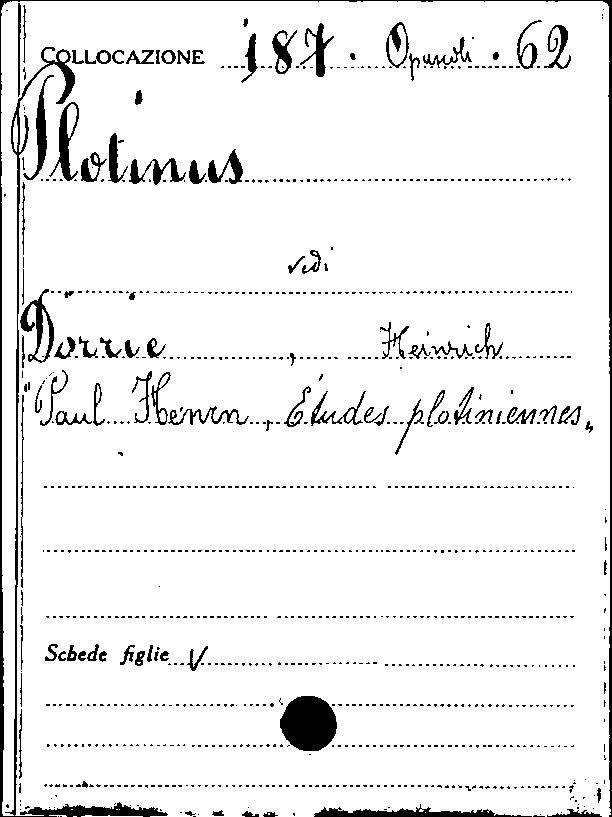 COLLOCAZIONE 187 . Opuscoli . 62
Plotinus
vedi
Dörrie , Heinrich
"Paul Henrn , Études plotiniennes„
Schede figlie V